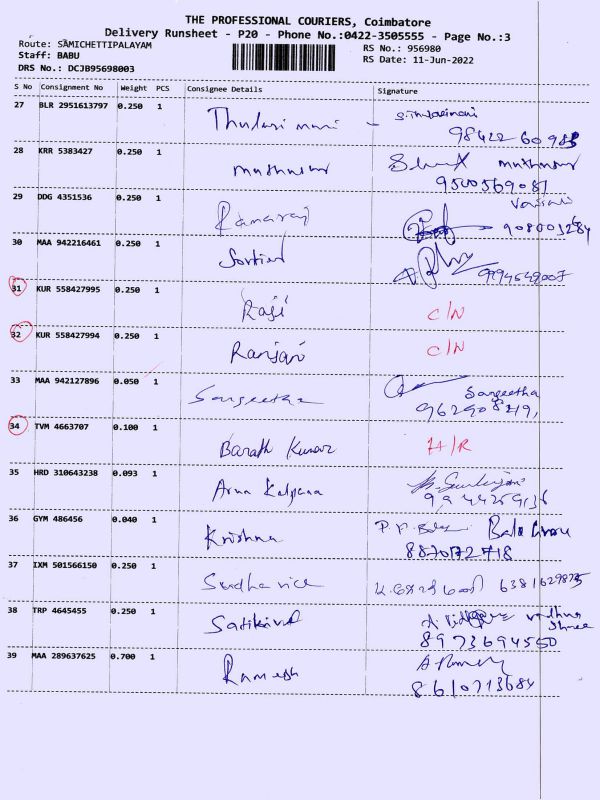 THE PROFESSIONAL COURIERS, Coimbatore
Delivery Runsheet - P20 - Phone No.:0422-3505555 - Page No.:3
Route: SAMICHETTIPALAYAM
RS No.: 956980
Staff: BABU
RS Date: 11-Jun-2022
DRS No.: DCJB95698003
S No Consignment No Weight PCS Consignee Details Signature
27 BLR 2951613797 0.250 1 Thulasi mani
28 KRR 5383427 0.250 1
9500569087
29 DDG 4351536 0.250 1 Ramaraj
30 MAA 942216461 0.250 1
31 KUR 558427995 0.250 1 Raji C/N
32 KUR 558427994 0.250 1 Ranjani C/N
33 MAA 942127896 0.050 1 Sangeetha Sangeetha
34 TVM 4663707 0.100 1 Barath Kumar H/R
35 HRD 310643238 0.093 1 Arun Kalpana
36 GYM 486456 0.040 1 Krishna
8870172718
37 IXM 501566150 0.250 1
38 TRP 4645455 0.250 1
8973694550
39 MAA 289637625 0.700 1 Ramesh
8610713684